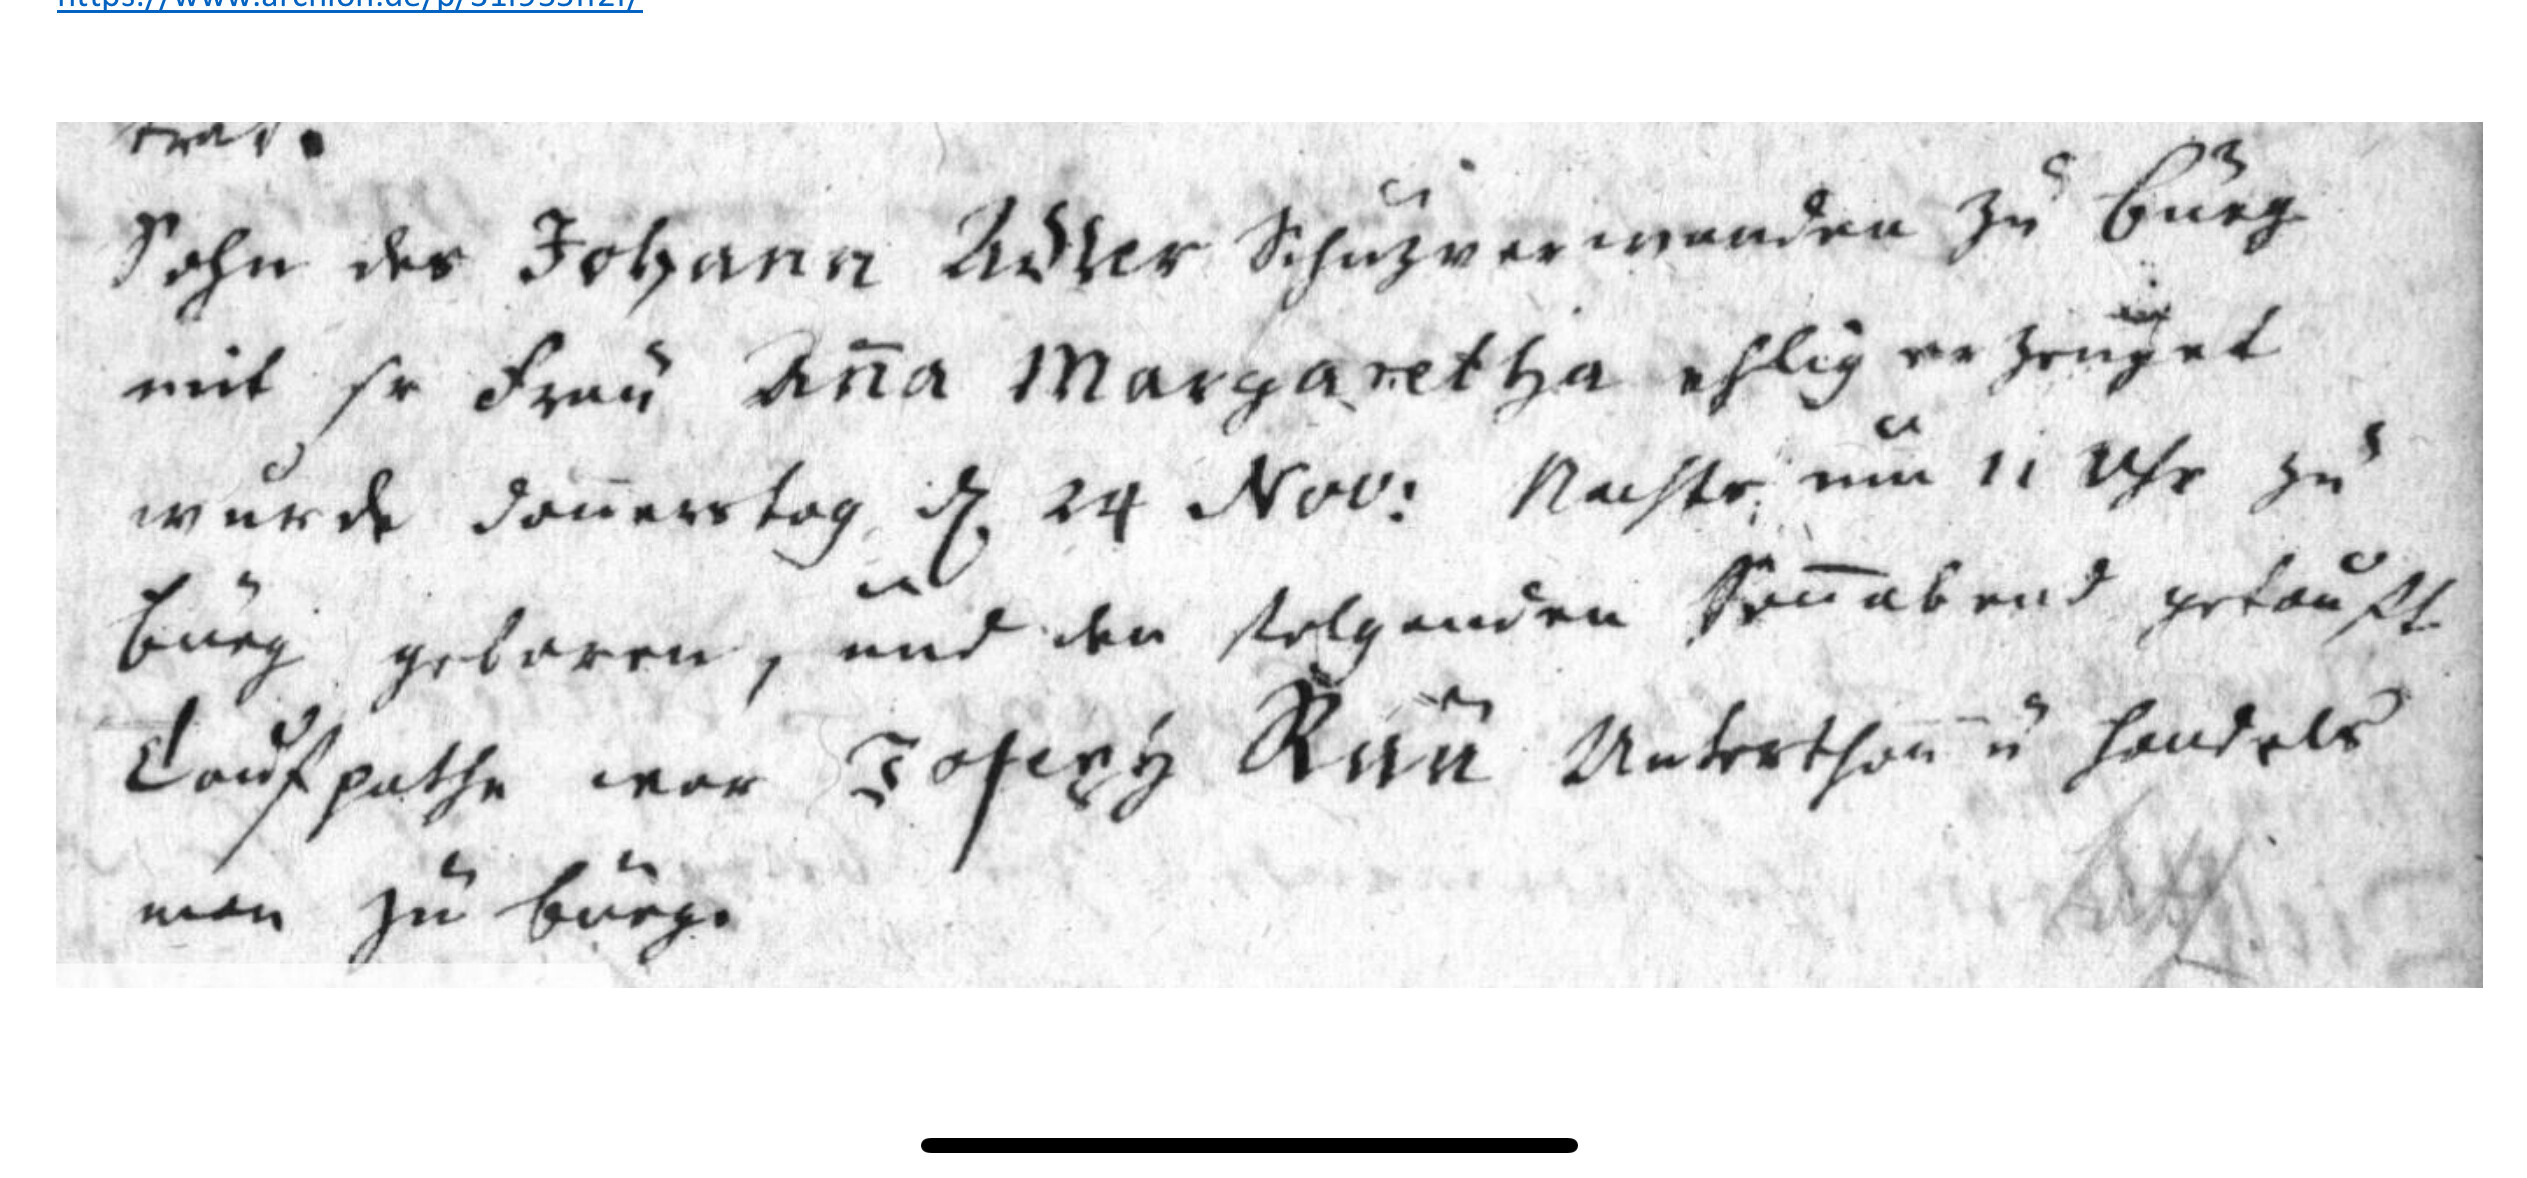 Sohn des Johann Adler Schuzverwanden zu Burg
mit sr Frau Aña Margaretha ehlig erzeuget
wurde Donnerstag d. 24 Nov: Nachts um 11 Uhr zu
Burg geboren, und den folgenden Soñabend getauft
Taufpathe war Joseph Unterthan u Handels
man zu Burg.